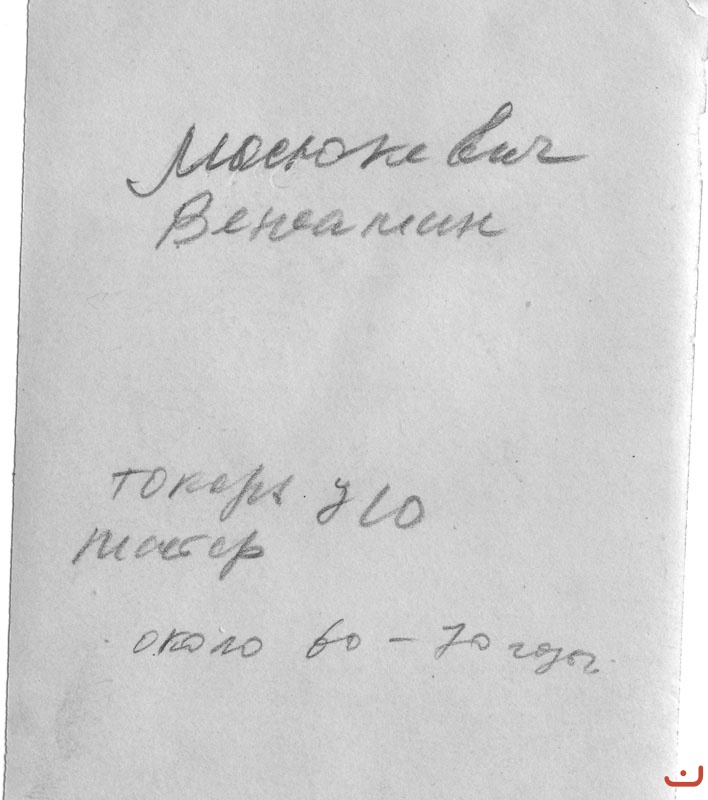 Мосюкевич
Вениамин
токарь
мастер
около 60 – 70 годы